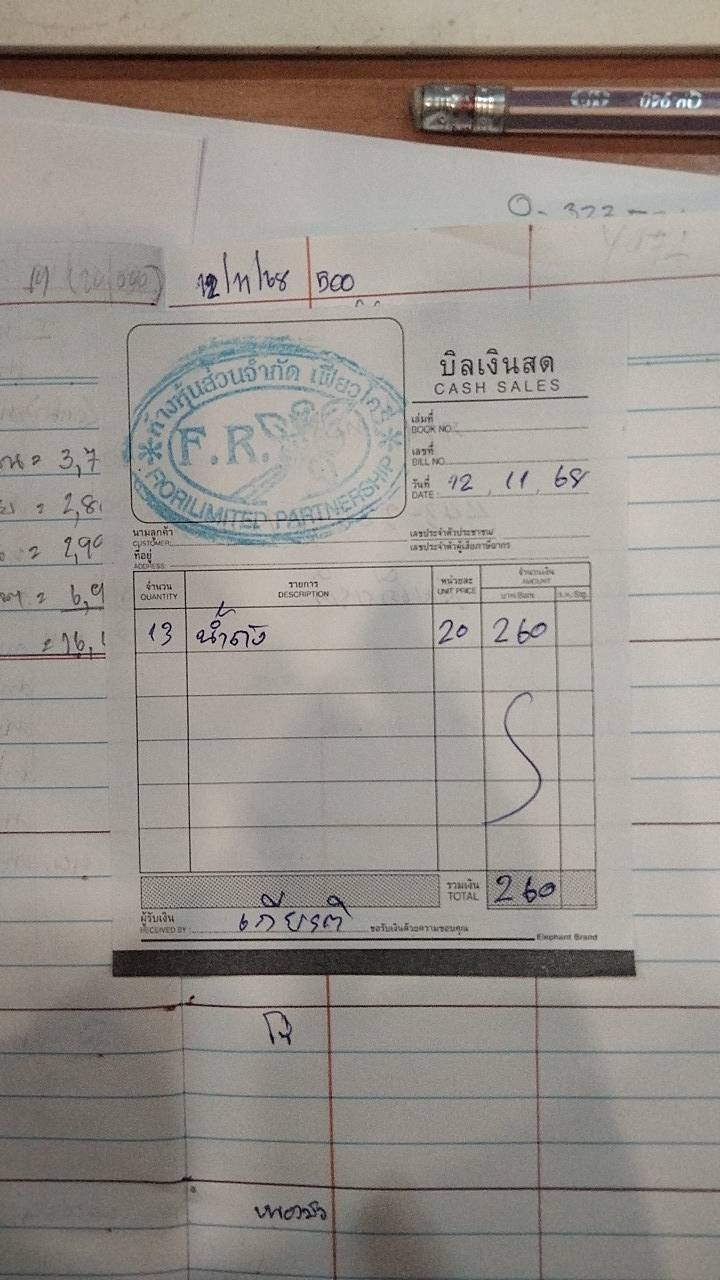 12/11/68 500
ห้างหุ้นส่วนจำกัด เฟียวโครี่
F.R.
FIORI LIMITED PARTNERSHIP
บิลเงินสด
CASH SALES
เล่มที่
BOOK NO.
เลขที่
BILL NO.
วันที่
DATE : 12 , 11 , 68
นามลูกค้า
CUSTOMER
เลขประจำตัวประชาชน/
เลขประจำตัวผู้เสียภาษีอากร
ที่อยู่
ADDRESS:
จำนวน รายการ หน่วยละ จำนวนเงิน
QUANTITY DESCRIPTION UNIT PRICE AMOUNT
บาท Baht ส.ต. Stg.
13 น้ำถัง 20 260
รวมเงิน
TOTAL 260
ผู้รับเงิน
RECEIVED BY : เกียรติ ขอรับเงินด้วยความขอบคุณ
Elephant Brand
= 3,7
= 2,8
= 2,90
= 6,9
= 16,1